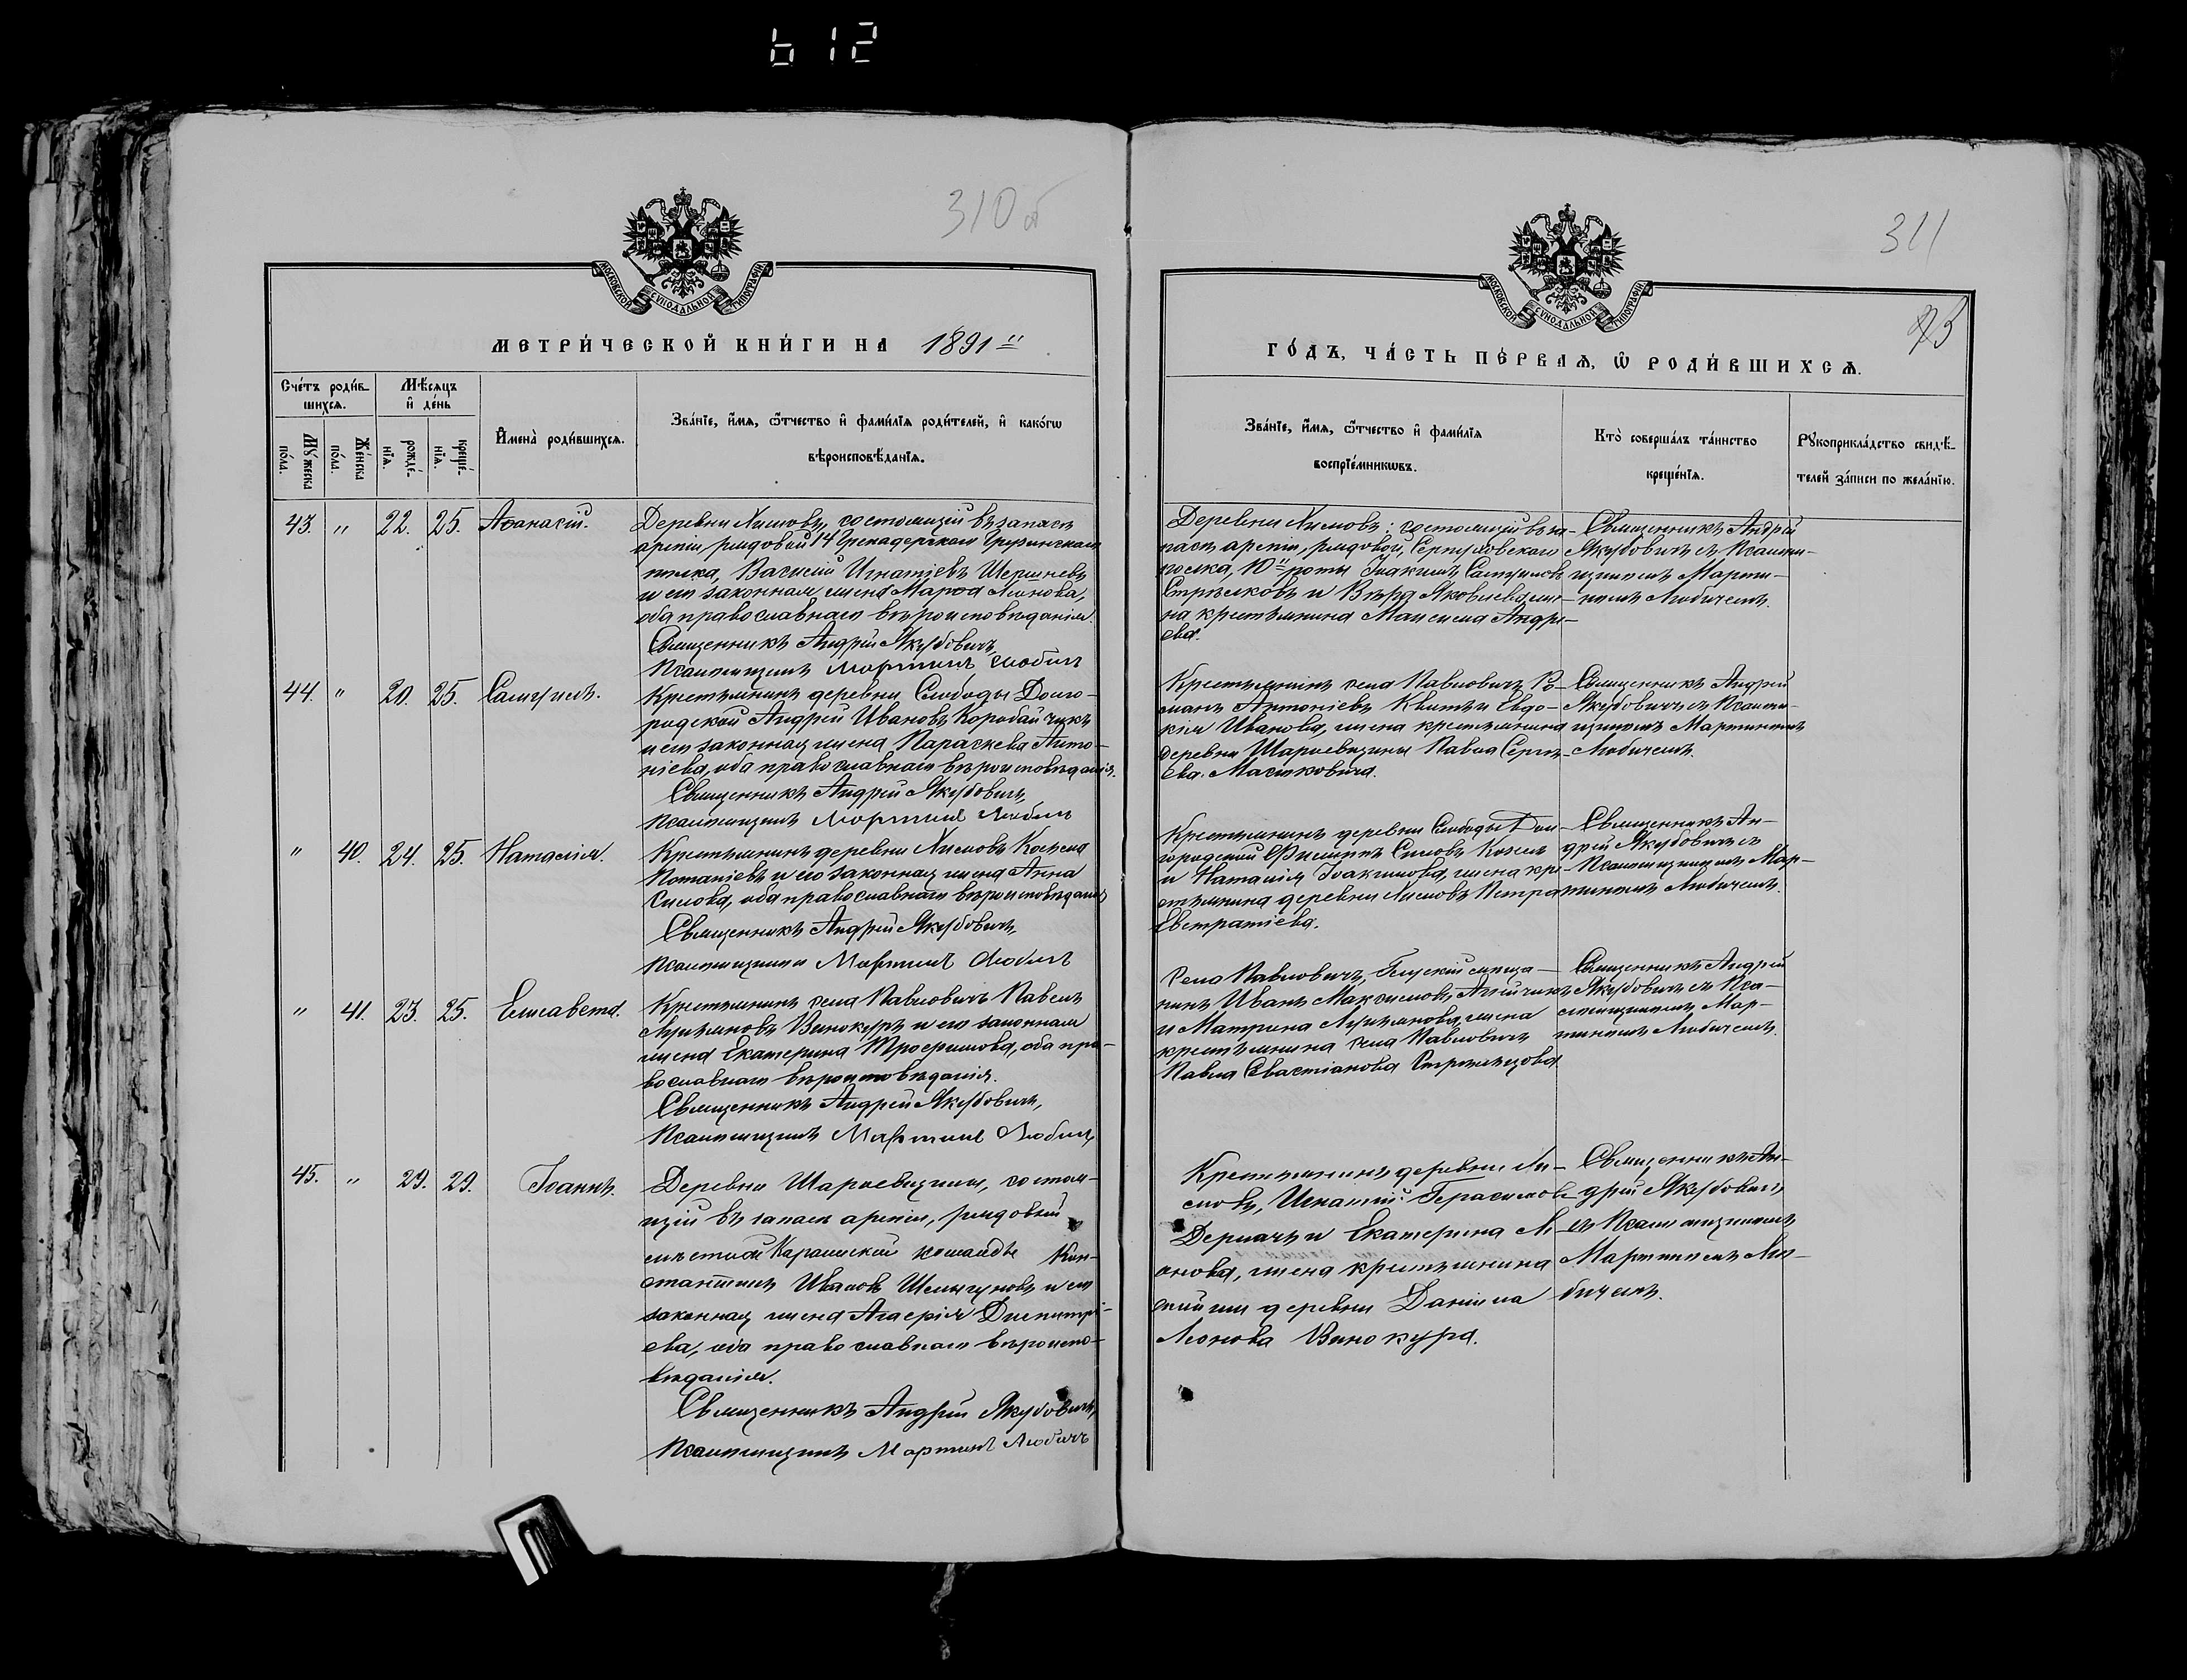 612
310 об
МОСКОВСКОЙ СѴНОДАЛЬНОЙ ТИПОГРАФІИ
МЕТРИ́ЧЕСКОЙ КНИ́ГИ НА 1891
Сче́тъ роди́вшихсѧ.
Мѣ́сѧцъ и҆ де́нь
Му́жеска по́ла.
Же́нска по́ла.
рожде́нїѧ.
креще́нїѧ.
И҆мена̀ роди́вшихсѧ.
Зва́нїе, и҆́мѧ, ѻ҆́тчество и҆ фами́лїѧ роди́телей, и҆ како́гѡ
вѣроисповѣ́данїѧ.
43. " 22. 25. Аѳанасій.
Деревни Лисловъ, состоящій въ запасѣ
арміи рядовой 14 Гренадерскаго Грузинскаго
полка, Василій Игнатіевъ
и его законная жена Леонова,
оба православнаго вѣроисповѣданія.
Священникъ Андрей Якубовичъ,
Псаломщикъ Мартинъ Любичъ
44. " 20. 25. Самуилъ.
Крестьянинъ деревни Слободы Долго-
родской Андрей Ивановъ
и его законная жена Параскева Анто-
ніева, оба православнаго вѣроисповѣданія.
Священникъ Андрей Якубовичъ,
Псаломщикъ Мартинъ Любичъ
" 40. 24. 25. Наталія.
Крестьянинъ деревни Лисловъ Косьма
Потапіевъ и его законная жена Анна
Силова, оба православнаго вѣроисповѣданія
Священникъ Андрей Якубовичъ,
Псаломщикъ Мартинъ Любичъ
" 41. 23. 25. Елисавета.
Крестьянинъ села Павловичъ Павелъ
Лукьяновъ Винокуръ и его законная
жена Екатерина Трофимова, оба пра-
вославнаго вѣроисповѣданія.
Священникъ Андрей Якубовичъ,
Псаломщикъ Мартинъ Любичъ
45. " 29. 29. Іоаннъ.
Деревни состоя-
щій въ запасѣ арміи, рядовой
мѣстной командѣ Кон-
стантинъ Ивановъ Шелыгуновъ и его
законная жена Димитрі-
ева, оба православнаго вѣроиспо-
вѣданія.
Священникъ Андрей Якубовичъ,
Псаломщикъ Мартинъ Любичъ
311
МОСКОВСКОЙ СѴНОДАЛЬНОЙ ТИПОГРАФІИ
ГО́ДЪ, ЧА́СТЬ ПЕ́РВАѦ, Ѽ РОДИ́ВШИХСѦ.
Зва́нїе, и҆́мѧ, ѻ҆́тчество и҆ фами́лїѧ
воспрїе́мникѡвъ.
Кто̀ соверша́лъ та́инство
креще́нїѧ.
Рꙋкоприкла́дство свидѣ́-
телей за́писи по жела́нїю.
Деревни Лисловъ: состоящій въ за-
пасѣ арміи, рядовой, Серпуховского
полка, 10 роты Іоакимъ Самуиловъ
Стрѣлковъ и Вѣра Яковлева же-
на крестьянина Андре-
ева.
Священникъ Андрей
Якубовичъ съ Псалом-
щикомъ Марти-
номъ Любичемъ.
Крестьянинъ села Павловичъ Ро-
манъ Антоніевъ и Евдо-
кія Иванова, жена крестьянина
деревни Павла Серге-
ева.
Священникъ Андрей
Якубовичъ съ Псалом-
щикомъ Мартиномъ
Любичемъ.
Крестьянинъ деревни Слободы Дол-
городской Филиппъ Силовъ Козелъ
и Наталія Іоакимова, жена кре-
стьянина деревни Лисловъ Петра
Евстратіева.
Священникъ Ан-
дрей Якубовичъ съ
Псаломщикомъ Мар-
тиномъ Любичемъ.
Села Павловичъ, Глускій мѣща-
нинъ Иванъ Максимовъ
и Матрина Лукьянова, жена
крестьянина села Павловичъ
Павла Севастіанова
Священникъ Андрей
Якубовичъ съ Пса-
ломщикомъ Мар-
тиномъ Любичемъ.
Крестьянинъ деревни Ли-
словъ, Игнатій Герасимовъ
и Екатерина Ле-
онова, жена крестьянина
деревни Даніила
Леонова Винокура.
Священникъ Ан-
дрей Якубовичъ
съ Псаломщикомъ
Мартиномъ Лю-
бичемъ.